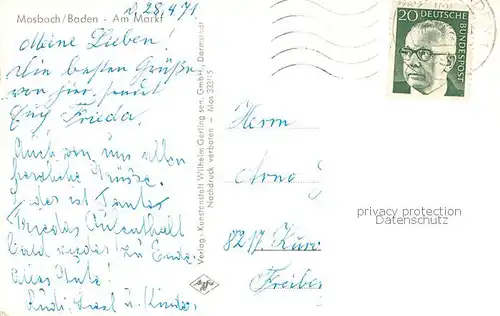 Mosbach/Baden · Am Markt
d. 28.4.71
Meine Lieben!
Die besten Grüße
von hier sendet
Euch Frieda.
Auch von uns allen
herzliche Grüsse.
Leider ist Tantes
Friedas Aufenthalt
bald wieder zu Ende.
Alles Gute!
Rudi, u. Kinder
Verlag · Kunstanstalt Wilhelm Gerling sen. GmbH., Darmstadt
Nachdruck verboten — Mos 3331/5
Agfa
20 DEUTSCHE BUNDESPOST
Herrn
Arno
8217
privacy protection
Datenschutz